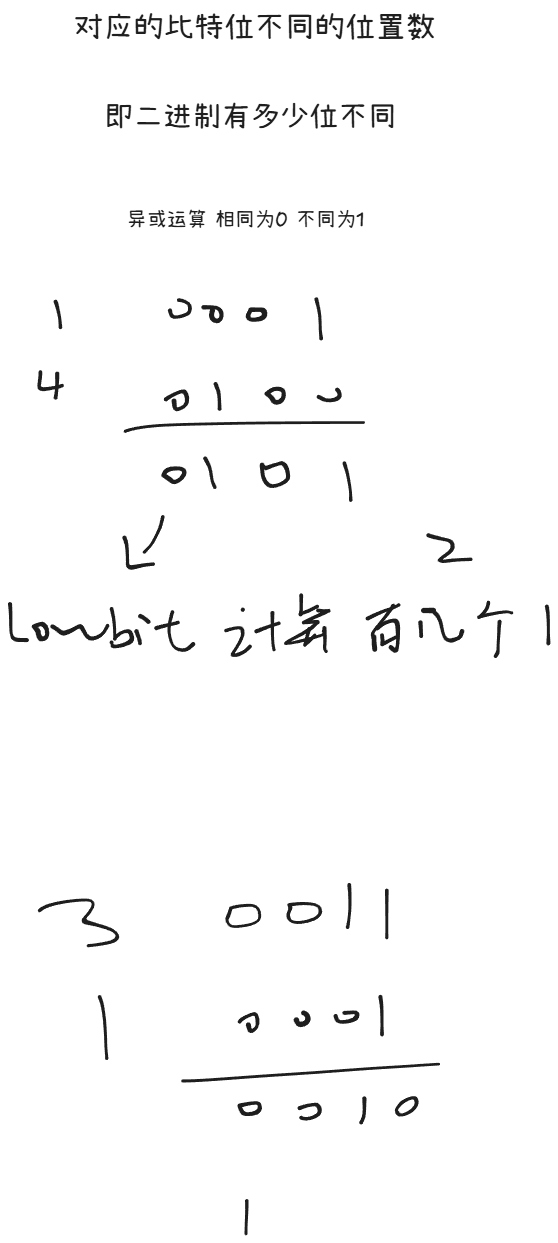 对应的比特位不同的位置数
即二进制有多少位不同
异或运算 相同为0 不同为1
1 0001
4 0100
0101
2
Lowbit 计算 有几个1
3 0011
1 0001
0010
1